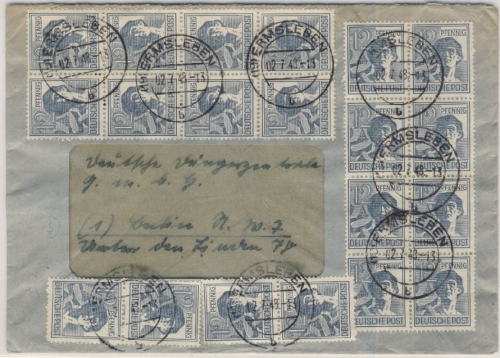 12 PFENNIG
DEUTSCHE POST
ERMSLEBEN
02.7.48.-13
b
Deutsche Düngerzentrale
G. m. b. H.
(1) Berlin N.W.7
Unter den Linden